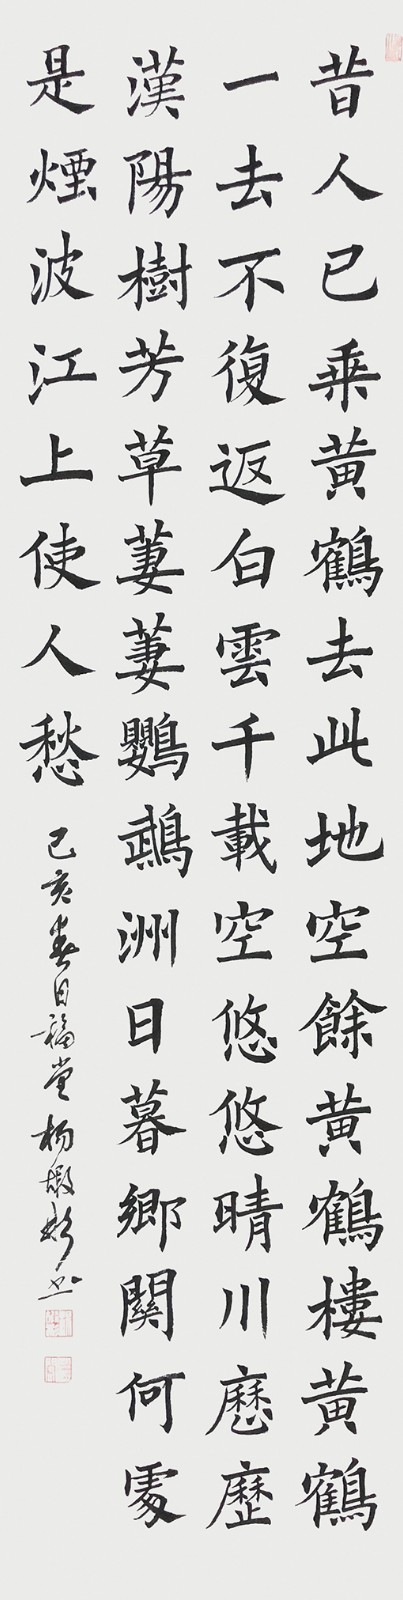 昔人已乘黃鶴去此地空餘黃鶴樓黃鶴
一去不復返白雲千載空悠悠晴川歷歷
漢陽樹芳草萋萋鸚鵡洲日暮鄉關何處
是煙波江上使人愁
己亥春日福堂杨书